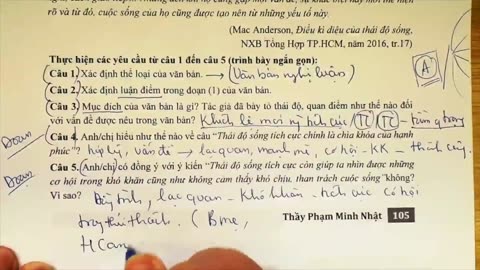 rõ và từ đó, cuộc sống của họ cũng được tạo nên từ những yếu tố này
(Mac Anderson, Điều kì diệu của thái độ sống,
NXB Tổng Hợp TP.HCM, năm 2016, tr.17)
Thực hiện các yêu cầu từ câu 1 đến câu 5 (trình bày ngắn gọn):
Câu 1. Xác định thể loại của văn bản. → (Văn bản nghị luận) A
Câu 2. Xác định luận điểm trong đoạn (1) của văn bản.
Câu 3. Mục đích của văn bản là gì? Tác giả đã bày tỏ thái độ, quan điểm như thế nào đối
với vấn đề được nêu trong văn bản?
Đoạn Câu 4. Anh/chị hiểu như thế nào về câu “Thái độ sống tích cực chính là chìa khóa của hạnh
phúc”? hợp lý, vấn đề → lạc quan, mạnh mẽ, cơ hội - KK -
Đoạn Câu 5. Anh/chị có đồng ý với ý kiến “Thái độ sống tích cực còn giúp ta nhìn được những
cơ hội trong khó khăn cũng như không cảm thấy khó chịu, than trách cuộc sống” không?
Vì sao? Bình tĩnh, lạc quan - khó khăn - tích cực cơ hội
thử thách. (B mẹ,
H Cam
Thầy Phạm Minh Nhật 105